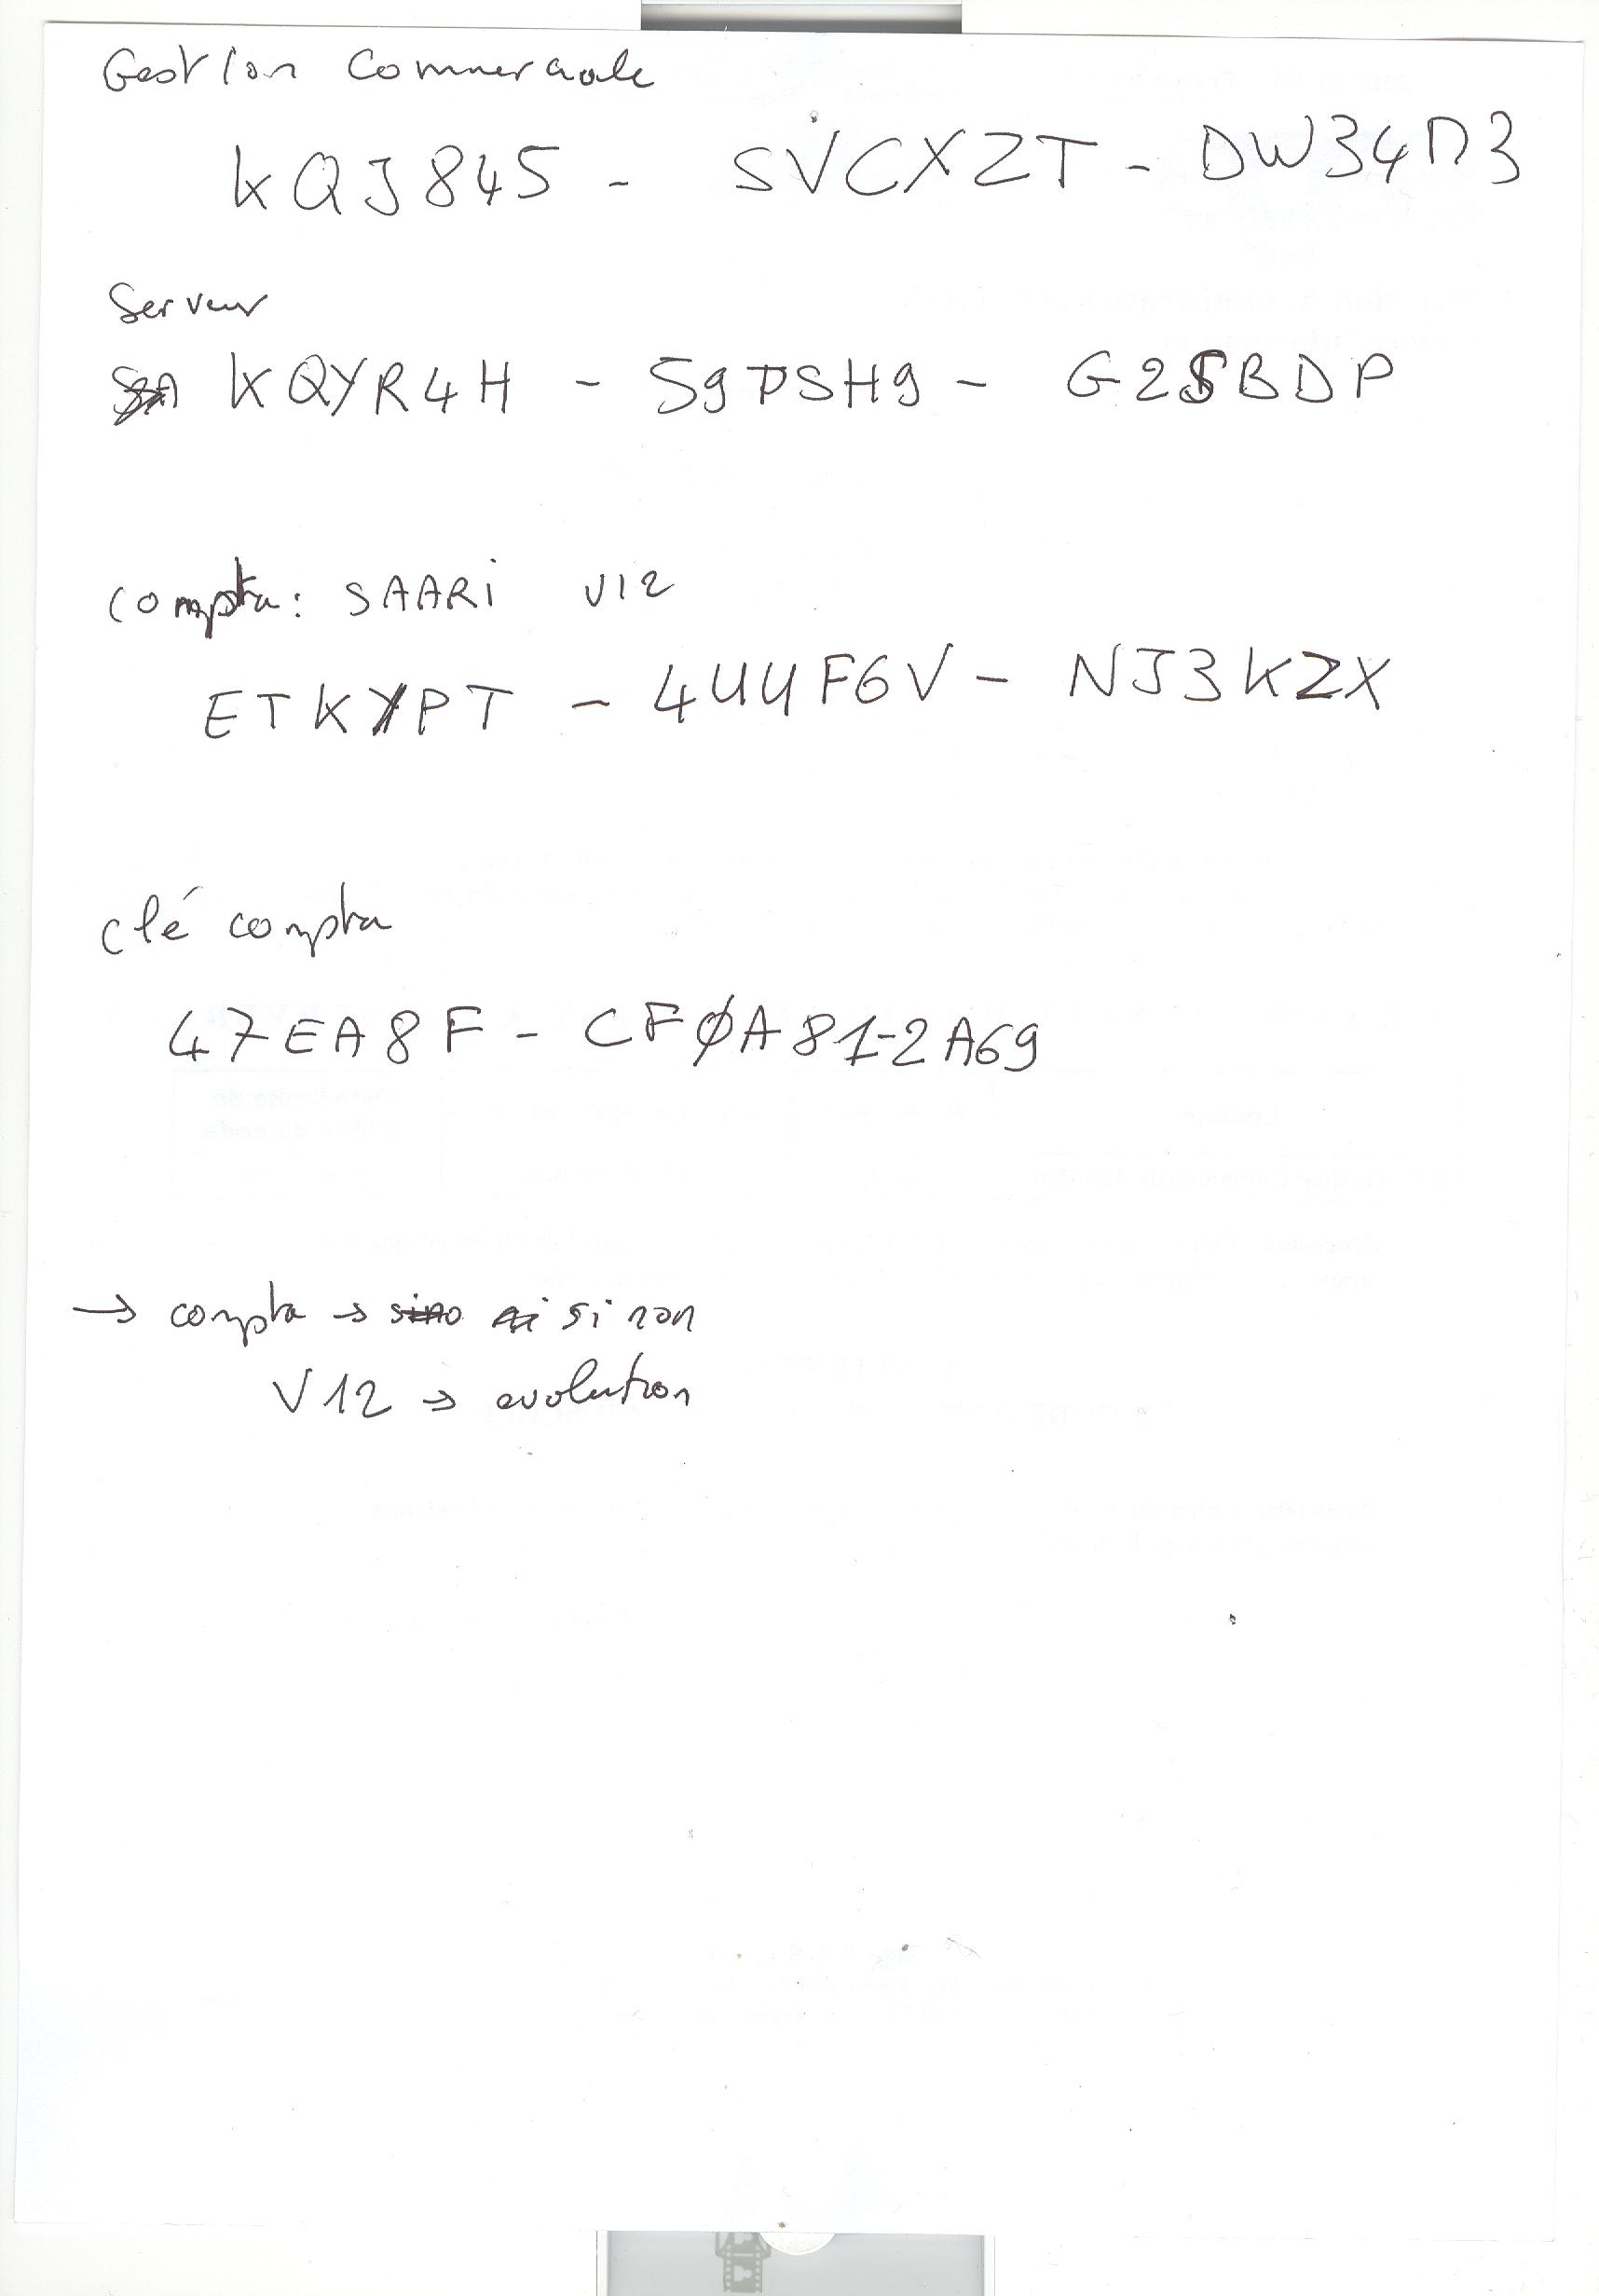 Gestion Commerciale
KQJ845 - SVCXZT - DW34D3
Serveur
KQYR4H - S9PSH9 - G25BDP
Compta: SAARi V12
ETKYPT - 4UUF6V - NJ3KZX
clé compta
47EA8F - CFØA81-2A69
→ compta → si non
V12 → evolution